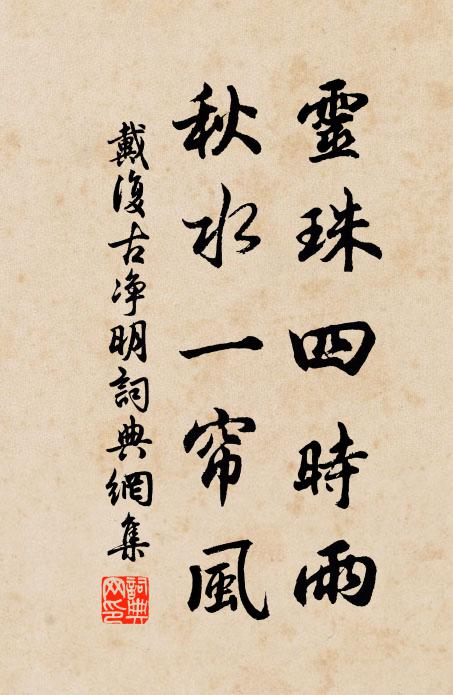 靈珠四時雨
秋水一帘風
戴復古淨明詞典網集
詞典網印